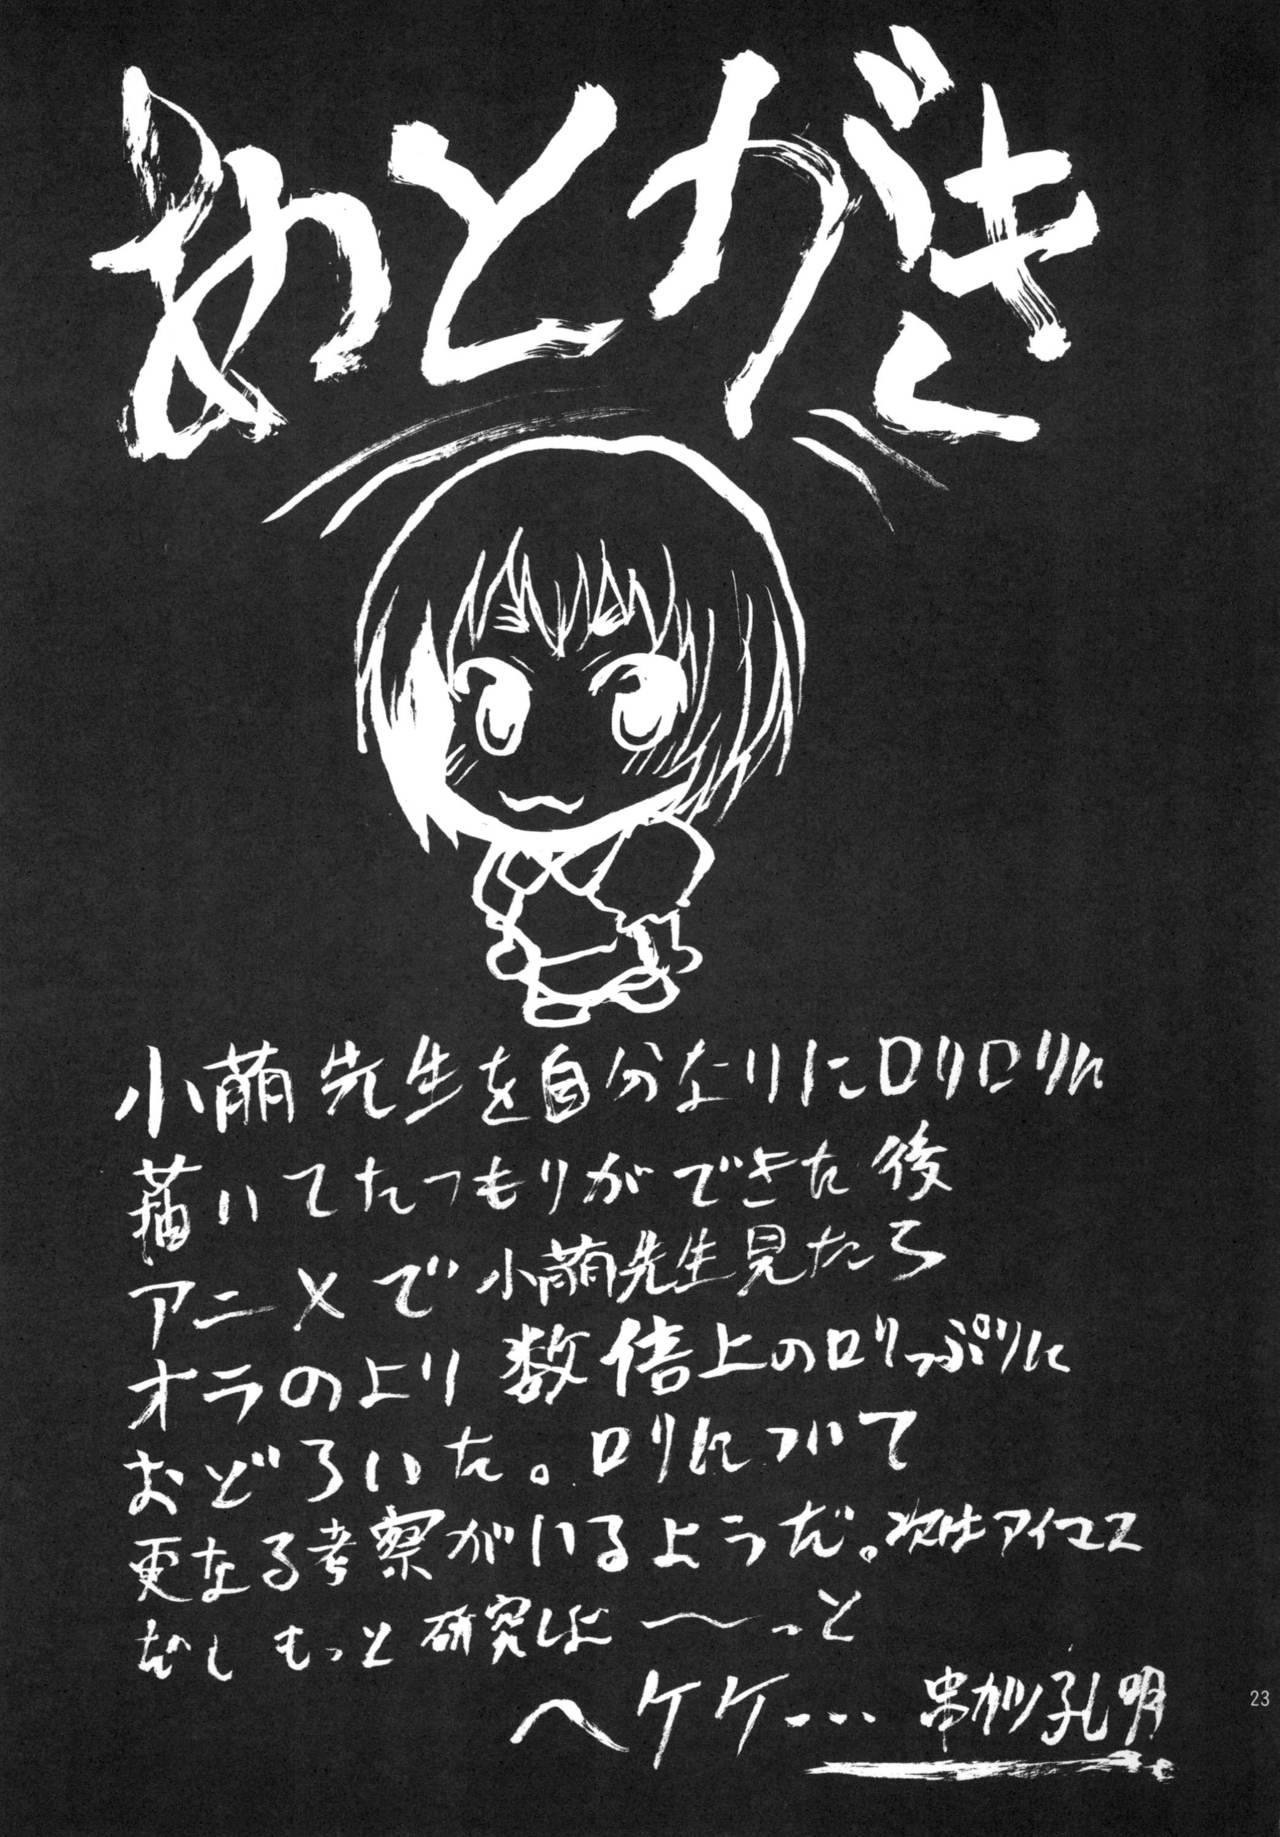 あとがき
小萌先生を自分なりにロリロリに
描いてたつもりができた後
アニメで小萌先生見たら
オラのより数倍上のロリっぷりに
おどろいた。ロリについて
更なる考察がいるようだ。次はアイマス
だし もっと研究しよ〜っと
ヘケケ… 串カツ孔明
23